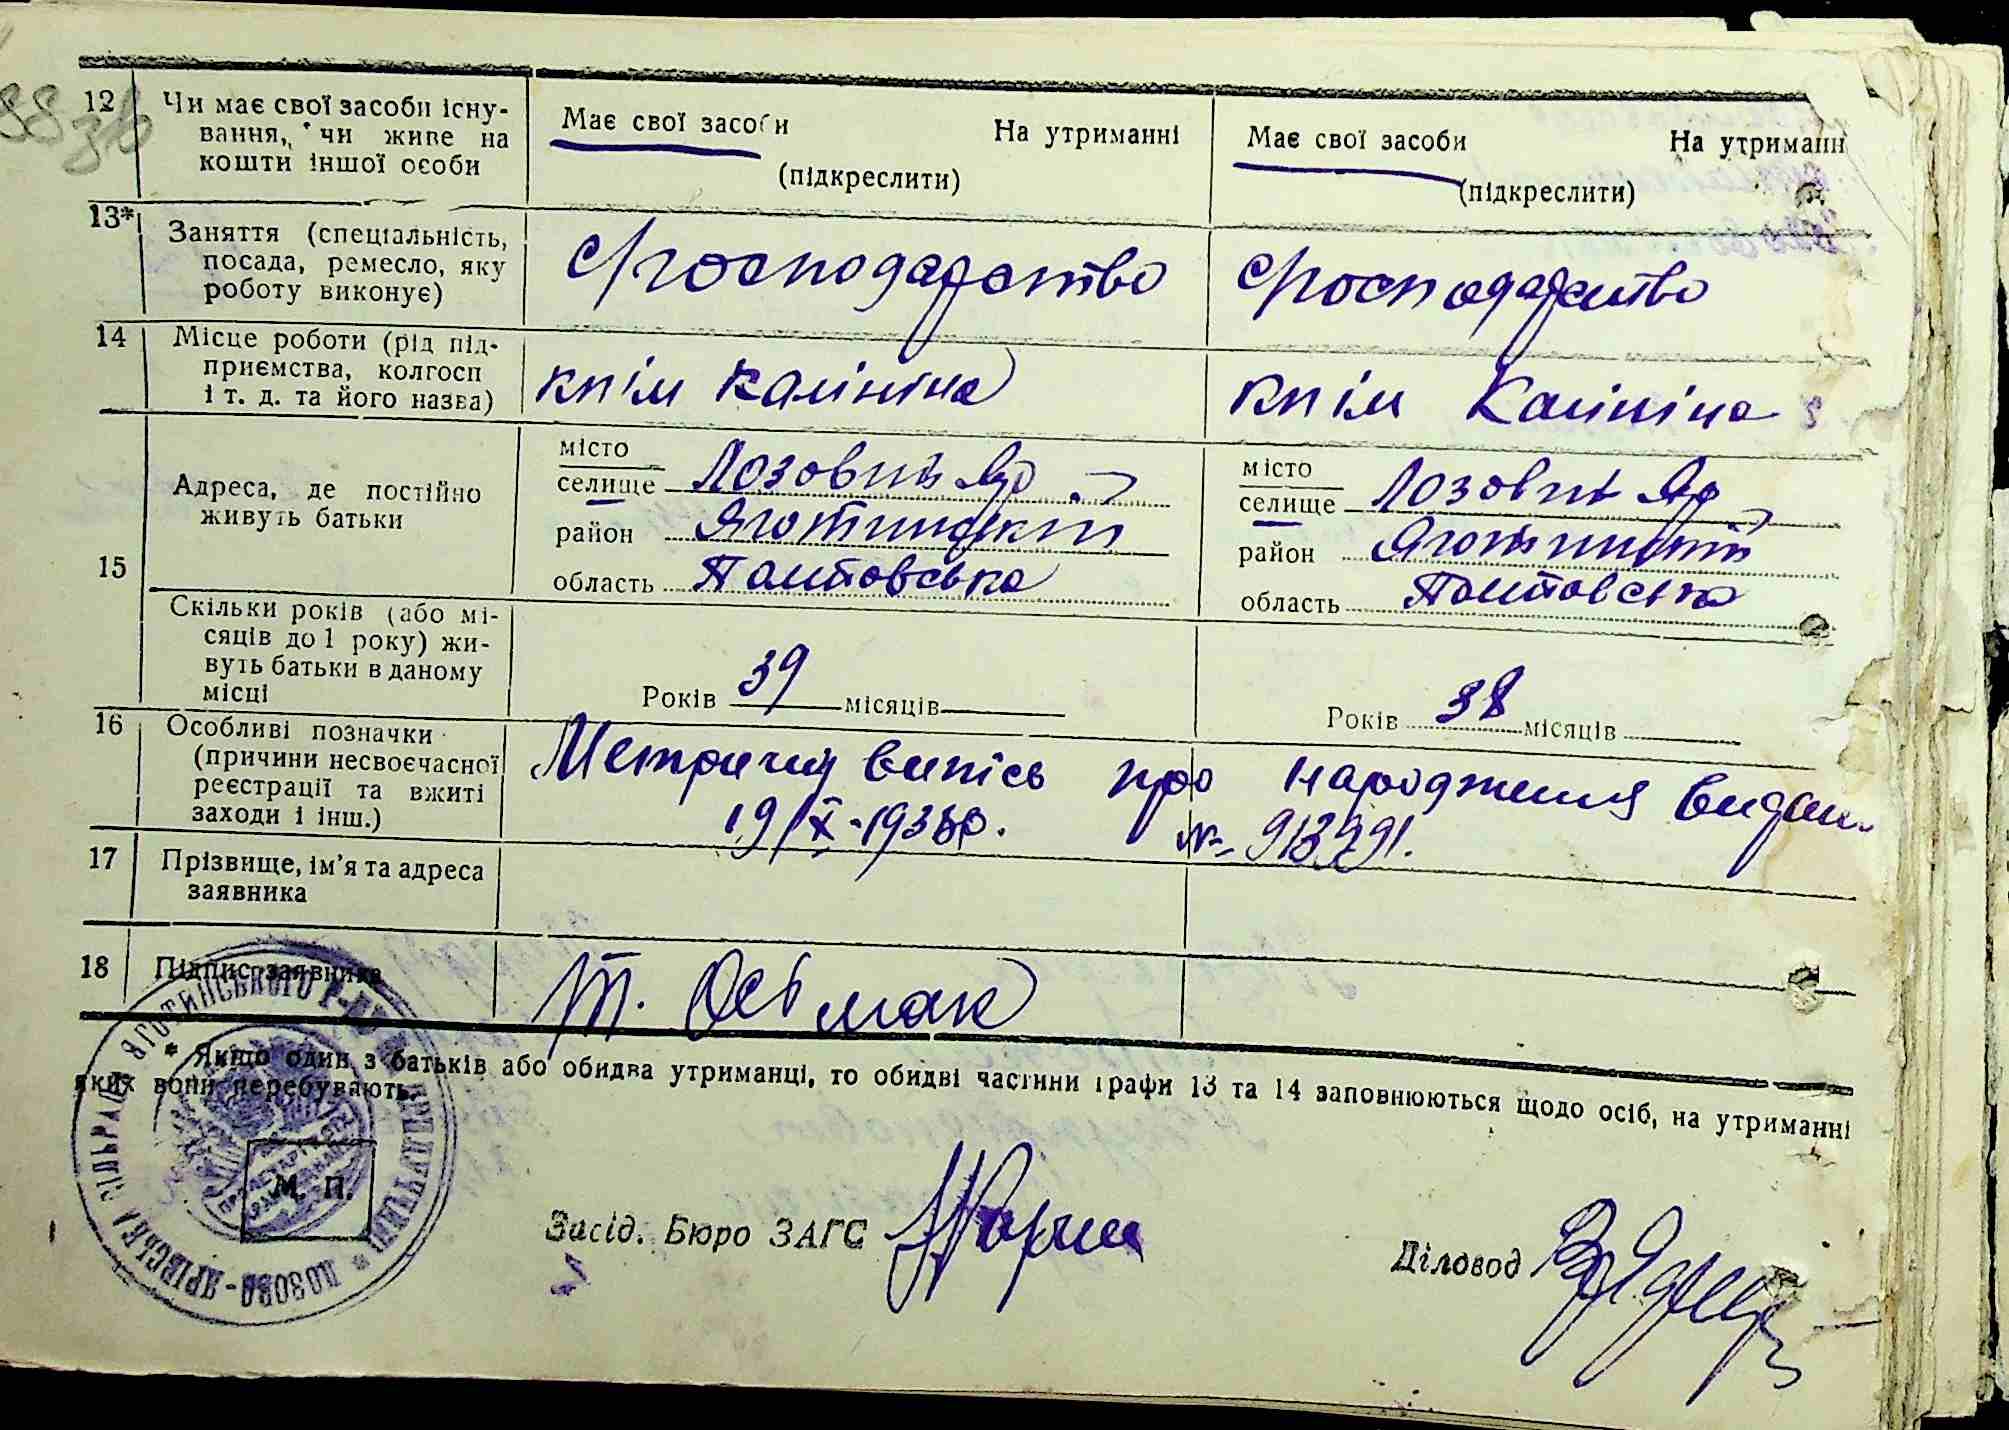 88 зв
12 Чи має свої засоби існу-
вання, чи живе на
кошти іншої особи
Має свої засоби На утриманні
(підкреслити)
Має свої засоби На утриманн
(підкреслити)
13* Заняття (спеціальність,
посада, ремесло, яку
роботу виконує)
с/господарство
с/господарство
14 Місце роботи (рід під-
приємства, колгосп
і т. д. та його назва)
кпім Калініна
кпім Калініна
15
Адреса, де постійно
живуть батьки
місто
селище Лозовий Яр
район Яготинський
область Полтовська
місто
селище Лозовий Яр
район Яготинський
область Полтовська
Скільки років (або мі-
сяців до 1 року) жи-
вуть батьки в даному
місці
Років 39 місяців
Років 38 місяців
16 Особливі позначки
(причини несвоєчасної
реєстрації та вжиті
заходи і інш.)
Метричний випісь про народження видан
19/X-1938р. №
17 Прізвище, ім'я та адреса
заявника
18 Підпис заявника
Т. Осьмак
* Якщо один з батьків або обидва утриманці, то обидві частини графи 13 та 14 заповнюються щодо осіб, на утриманні
яких вони перебувають.
М. П.
ЯГОТИНСЬКОГО Р-НУ
ЛОЗОВО-ЯРІВСЬКА СІЛЬРАДА
Засід. Бюро ЗАГС
Діловод